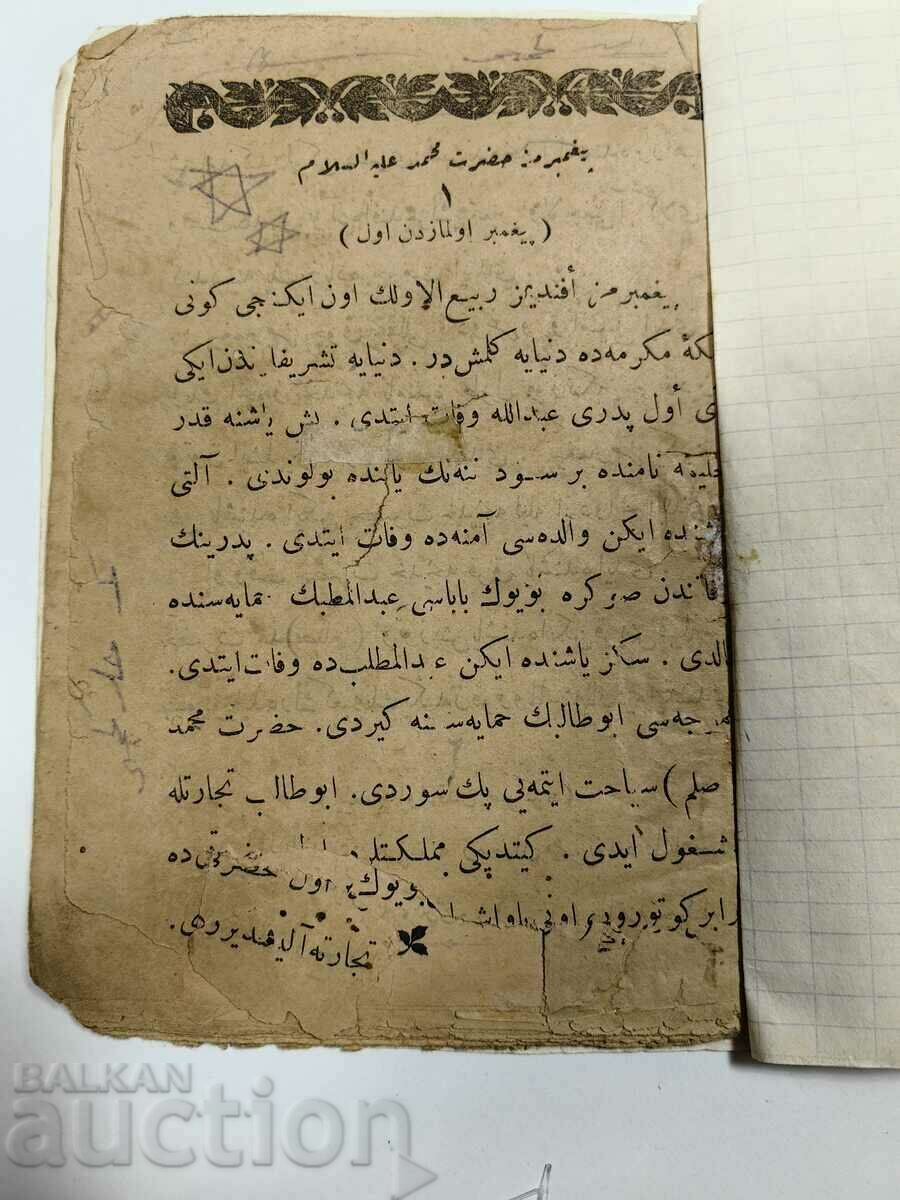 پیغمبرمز حضرت محمد علیه السلام
۱
( پیغمبر اولمازدن اول )
پیغمبرمز أفندیمز ربیع الاولك اون ایکنجی کونی
مکۀ مکرمه‌ده دنیایه کلمش در . دنیایه تشریفا ندن ایکی
أول پدری عبدالله وفات ایتدی . بش یاشنه قدر
حلیمه نامنده بر سود ننه‌نك یاننده بولوندی . آلتی
یاشنده ایکن والده‌سی آمنه‌ده وفات ایتدی . پدرینك
وفاتندن صوکره بویوك باباسی عبدالمطلبك حمایه‌سنده
قالدی . سکز یاشنده ایکن عبدالمطلب‌ده وفات ایتدی .
عمرجه‌سی ابوطالبك حمایه‌سنه کیردی . حضرت محمد
( صلم ) سیاحت ایتمه‌یی پك سوردی . ابوطالب تجارتله
مشغول ایدی . کیتدیکی
بویوك اول حضرتی ده
برابر کوتورو اونی یاواش
تجارته آلیشدیردی .
BALKAN
auction